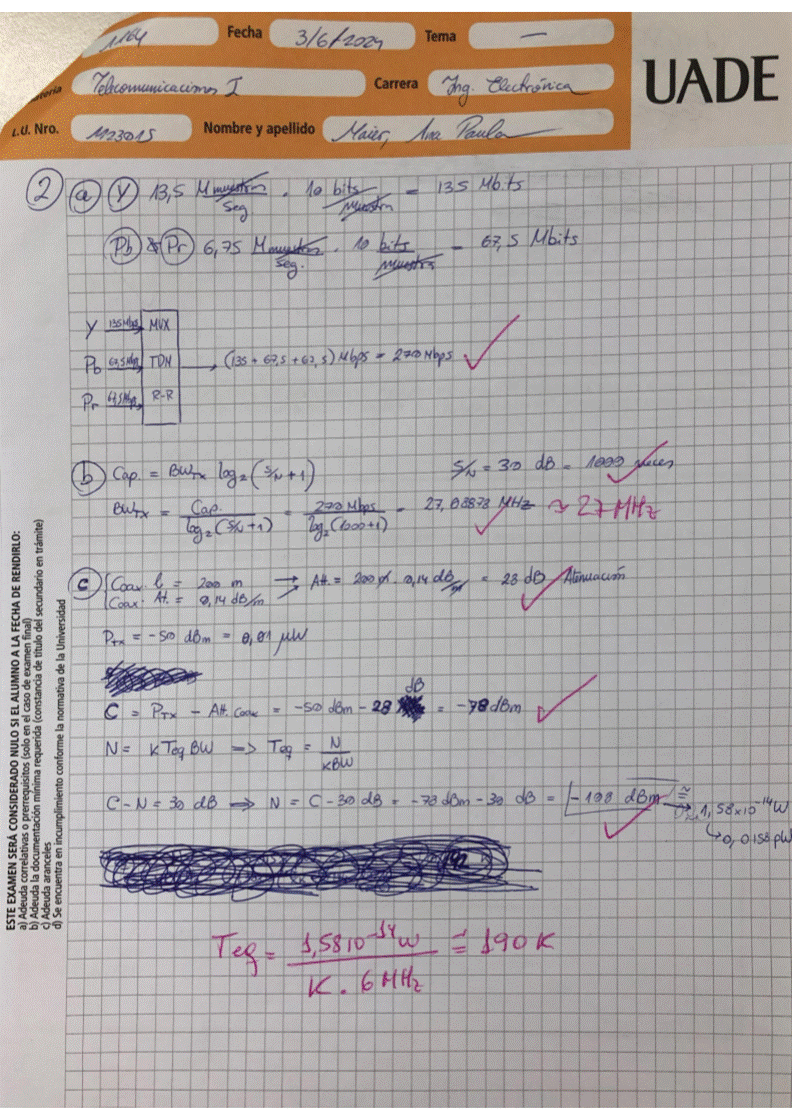 1164 Fecha 3/6/2024 Tema —
UADE
Materia Telecomunicaciones I Carrera Ing. Electrónica
L.U. Nro. 1123015 Nombre y apellido Maier, Ana Paula
2 a Y 13,5 Mmuestras/seg . 10 bits/muestra = 135 Mbits
Pb y Pr 6,75 Mmuestras/seg. . 10 bits/muestra = 67,5 Mbits
Y 135Mbps MUX
Pb 67,5Mbps TDM → (135 + 67,5 + 67,5) Mbps = 270 Mbps
Pr 67,5Mbps R-R
b Cap. = BWTx log2 (S/N + 1) S/N = 30 dB = 1000 veces
BWTx = Cap. / log2(S/N+1) = 270 Mbps / log2(1000+1) = 27,08873 MHz ≈ 27 MHz
c Coax. l = 200 m → Att. = 200 m . 0,14 dB/m = 28 dB Atenuación
Coax. At. = 0,14 dB/m
PTx = -50 dBm = 0,01 μW
C = PTx - Att. Coax = -50 dBm - 28 dB = -78 dBm
N = k Teq BW => Teq = N / kBW
C - N = 30 dB => N = C - 30 dB = -78 dBm - 30 dB = -108 dBm ≅ 1,58x10^-14 W
↳ 0,0158 pW
Teq = 1,58 10^-14 W / K . 6 MHz ≅ 190 K
ESTE EXAMEN SERÁ CONSIDERADO NULO SI EL ALUMNO A LA FECHA DE RENDIRLO:
a) Adeuda correlativas o prerrequisitos (solo en el caso de examen final)
b) Adeuda la documentación mínima requerida (constancia de título del secundario en trámite)
c) Adeuda aranceles
d) Se encuentra en incumplimiento conforme la normativa de la Universidad